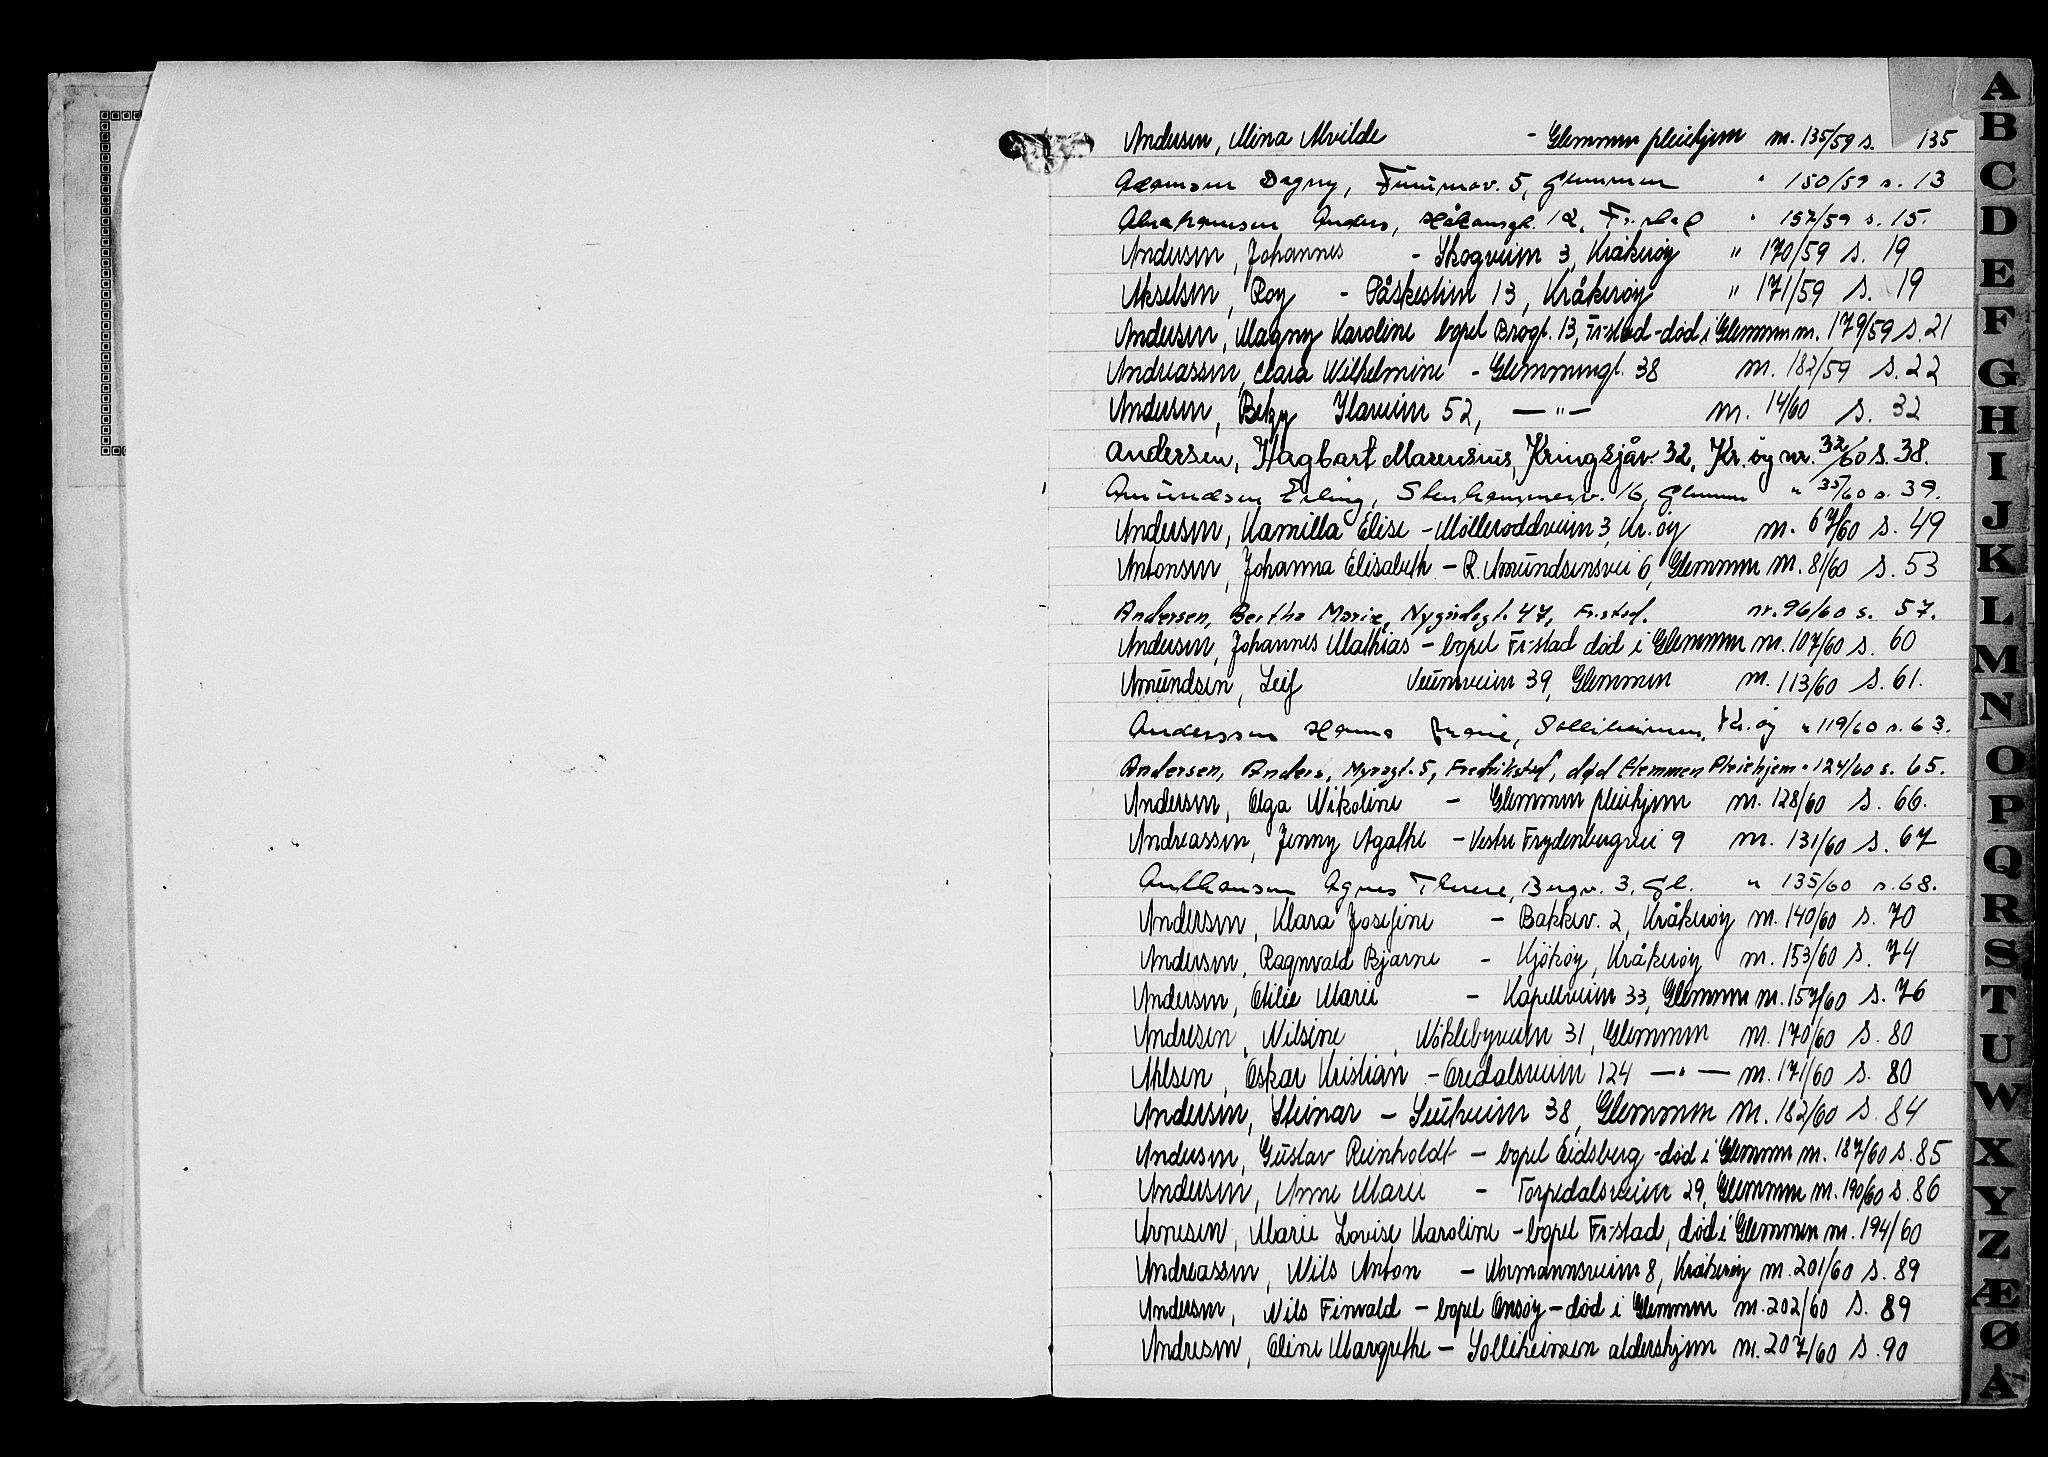 Andersen, Mina Alvilde - Glemmen pleiehjem nr. 135/59 s. 135
Adamsen Dagny, 5, Glemmen " 150/59 s. 13
Abrahamsen Anders, Håkonsgt. 12, Fr.stad " 157/59 s. 15.
Andersen, Johannes - Skogveien 3, Kråkerøy " 170/59 s. 19
Akselsen, Roy - Påskestien 13, Kråkerøy " 171/59 s. 19
Andersen, Magny Karoline bopel Brogt. 13, Fr-stad - død i Glemmen nr. 179/59 s. 21
Andreassen, Clara Wilhelmine - Glemmengt. 38 nr. 182/59 s. 22
Andersen, Betzy Ilaveien 52, — " — nr. 14/60 s. 32
Andersen, Hagbart Marensius, Kringsjåv. 32, Kr.øy nr. 32/60 s. 38.
Amundsen Erling, Stenhammerv. 16, Glemmen " 35/60 s. 39.
Andersen, Kamilla Elise - Mölleroddveien 3, Kr.øy nr. 67/60 s. 49
Antonsen, Johanna Elisabeth - R. Amundsensvei 6, Glemmen nr. 81/60 s. 53
Andersen, Bertha Marie, Nygårdsgt. 47, Fr.stad. nr. 96/60 s. 57.
Andersen, Johannes Mathias - bopel Fr-stad død i Glemmen nr. 107/60 s. 60
Amundsen, Leif Veumveien 39, Glemmen nr. 113/60 s. 61.
Anderssen Hanna Marie, Solliheimen, Kr.øy " 119/60 s. 63.
Andersen, Anders, Myragt. 5, Fredrikstad, død Glemmen Pleiehjem " 124/60 s. 65.
Andersen, Olga Nikoline - Glemmen pleiehjem nr. 128/60 s. 66.
Andreassen, Jenny Agathe - Vestre Frydenbergvei 9 nr. 131/60 s. 67
Agnes Therese, Bergv. 3, Gl. " 135/60 s. 68.
Andersen, Klara Josefine - Bakkev. 2, Kråkerøy nr. 140/60 s. 70
Andersen, Ragnvald Bjarne - Kjökøy, Kråkerøy nr. 153/60 s. 74
Andersen, Otilie Marie - Kapellveien 33, Glemmen nr. 157/60 s. 76
Andresen, Nilsine, Nöklebyveien 31, Glemmen nr. 170/60 s. 80
Ahlsen, Oskar Kristian - Oredalsveien 124 — " — nr. 171/60 s. 80
Andersen, Steinar - Leiteveien 38, Glemmen nr. 182/60 s. 84
Andersen, Gustav Reinholdt - bopel Eidsberg - død i Glemmen nr. 187/60 s. 85
Andersen, Anne Marie - Torpedalsveien 29, Glemmen nr. 190/60 s. 86
Arnesen, Marie Lovise Karoline - bopel Fr-stad, død i Glemmen nr. 194/60
Andreassen, Nils Anton - Normannsveien 8, Kråkerøy nr. 201/60 s. 89
Andersen, Nils Finvald - bopel Onsøy - død i Glemmen nr. 202/60 s. 89
Andresen, Oline Margrethe - Solliheimen aldershjem nr. 207/60 s. 90
A
B
C
D
E
F
G
H
I
J
K
L
M
N
O
P
Q
R
S
T
U
W
X
Y
Z
Æ
Ø
Å